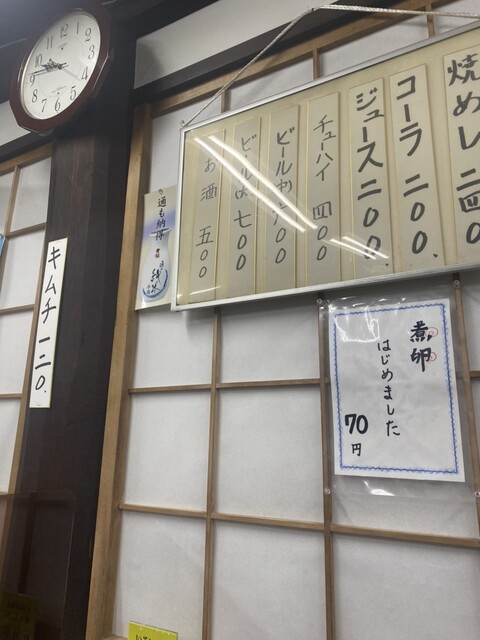 焼めし 二四〇
コーラ 二〇〇
ジュース 二〇〇
チューハイ 四〇〇
ビール中 六〇〇
ビール大 七〇〇
お酒 五〇〇
煮卵
はじめました
70円
通も納得
キムチ 一二〇
12
1
2
3
4
5
6
7
8
9
10
11